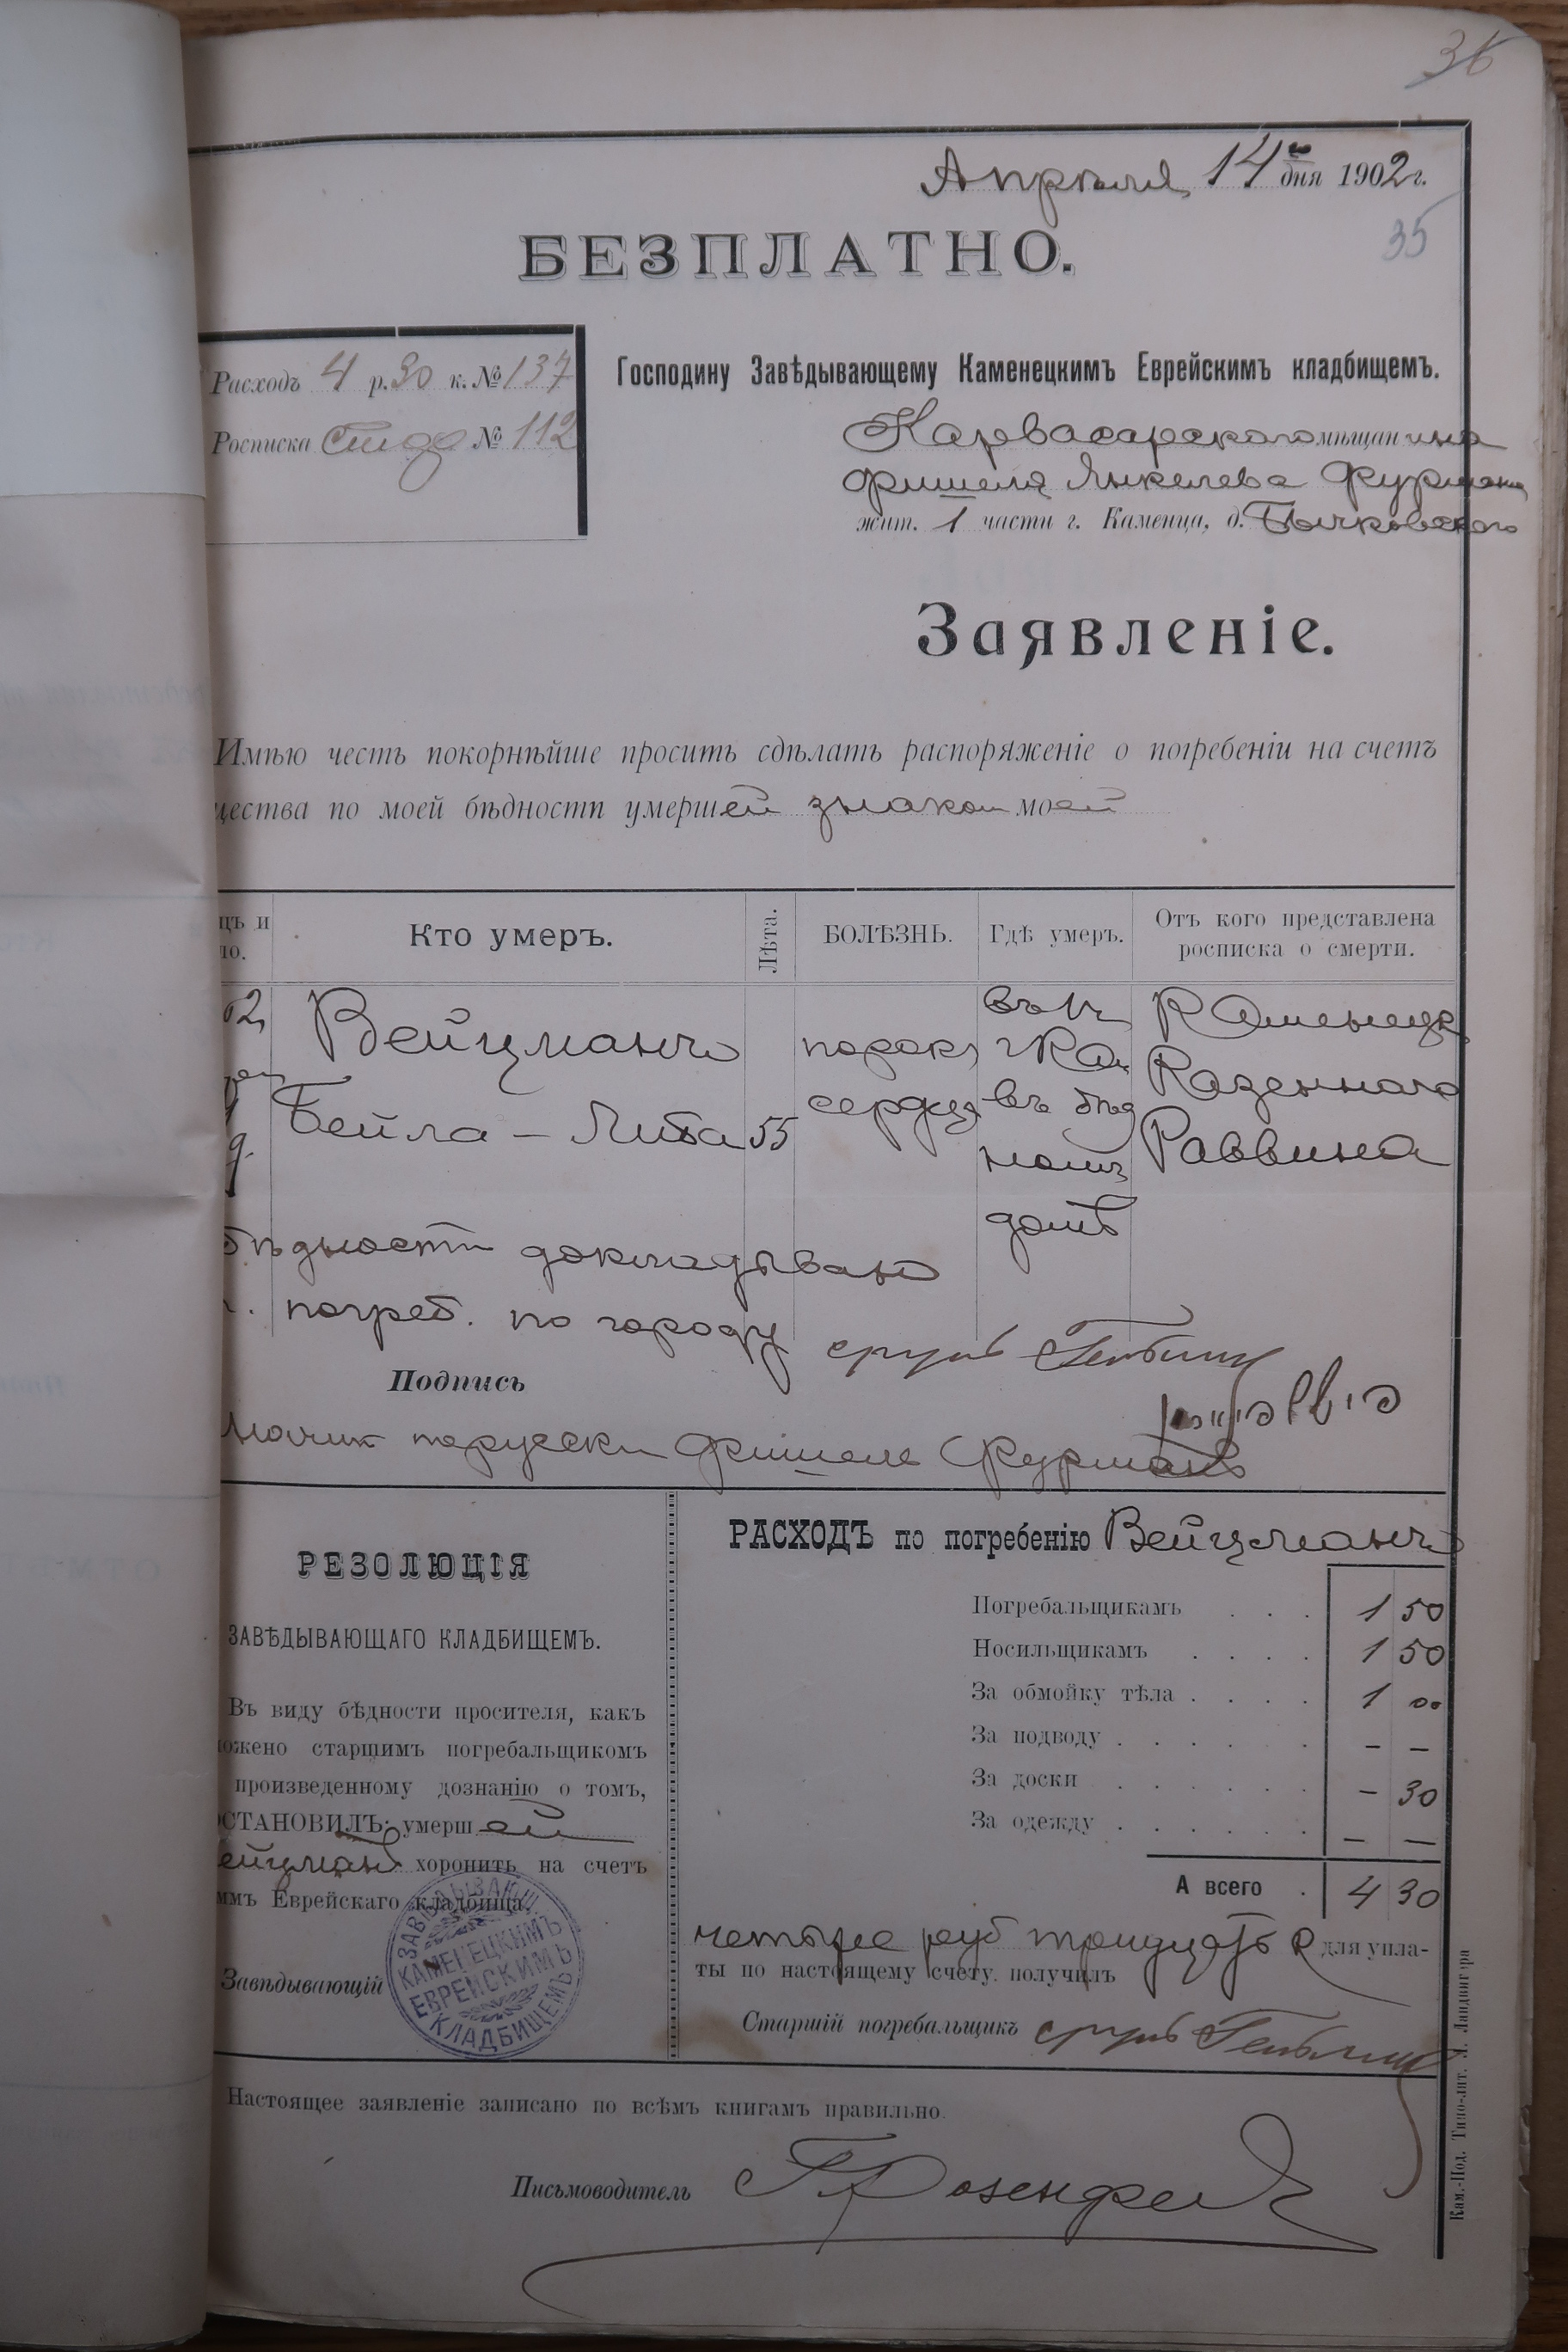 36
Апрѣля 14 дня 1902 г.
35
БЕЗПЛАТНО.
Расходъ 4 р. 30 к. № 137
Росписка № 112
Господину Завѣдывающему Каменецкимъ Еврейскимъ кладбищемъ.
Карвасарского мѣщанина
Фишеля Янкелева Фурмана
жит. 1 части г. Каменца, д. Бычковского
Заявленіе.
Имѣю честь покорнѣйше просить сдѣлать распоряженіе о погребеніи на счетъ
щества по моей бѣдности умершей знакомоей
цъ и
ло.
Кто умеръ.
Лѣта.
БОЛѢЗНЬ.
Гдѣ умеръ.
Отъ кого представлена
росписка о смерти.
Вейцманъ
Бейла-Либа
55
порокъ
сердца
въ
въ бѣд
номъ
домѣ
Каменецк
Казенного
Раввина
бѣдности докладываю
погреб. по городу
Подпись
порусски Фишель Фурманъ
РЕЗОЛЮЦІЯ
ЗАВѢДЫВАЮЩАГО КЛАДБИЩЕМЪ.
Въ виду бѣдности просителя, какъ
ложено старшимъ погребальщикомъ
произведенному дознанію о томъ,
ОСТАНОВИЛЪ: умершей
ейцманъ хоронить на счетъ
ммъ Еврейскаго кладбища.
Завѣдывающій
ЗАВѢДЫВАЮЩ. КАМЕНЕЦКИМЪ ЕВРЕЙСКИМЪ КЛАДБИЩЕМЪ
РАСХОДЪ по погребенію Вейцманъ
Погребальщикамъ . . . 1 50
Носильщикамъ . . . . 1 50
За обмойку тѣла . . . . 1 00
За подводу . . . . . . – –
За доски . . . . . . – 30
За одежду . . . . . . – –
А всего . 4 30
четыре руб тридцать к для упла-
ты по настоящему счету получилъ
Старшій погребальщикъ
Настоящее заявленіе записано по всѣмъ книгамъ правильно.
Письмоводитель Розенфел
Кам.-Под. Типо-лит. Л. Ландвигера